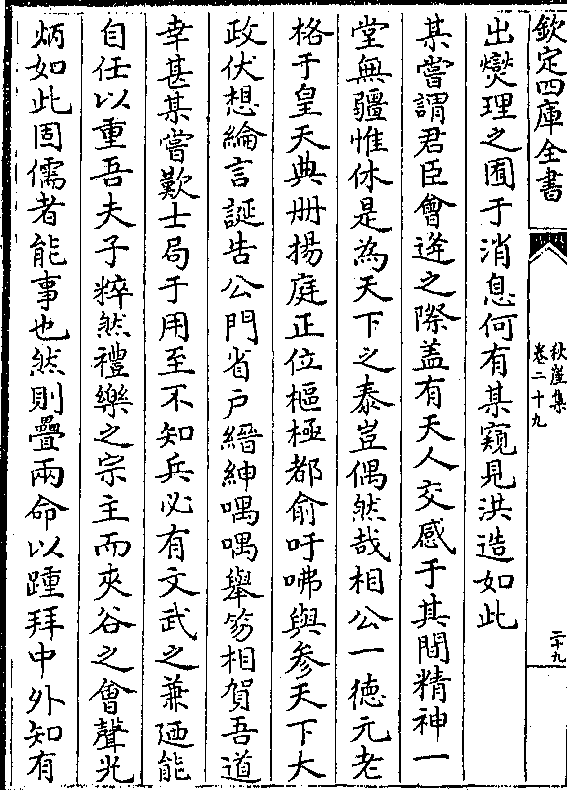 欽定四庫全書
秋崖集
卷二十九
二十九
出爕理之囿于消息何有某窺見洪造如此
某嘗謂君臣㑹逢之際盖有天人交感于其間精神一
堂無疆惟休是為天下之泰豈偶然哉相公一徳元老
格于皇天典册揚庭正位樞極都俞吁咈與参天下大
政伏想綸言誕告公門省戸縉紳喁喁舉笏相賀吾道
幸甚某嘗歎士局于用至不知兵必有文武之兼廼能
自任以重吾夫子粹然禮樂之宗主而夾谷之㑹聲光
炳如此固儒者能事也然則疊兩命以踵拜中外知有